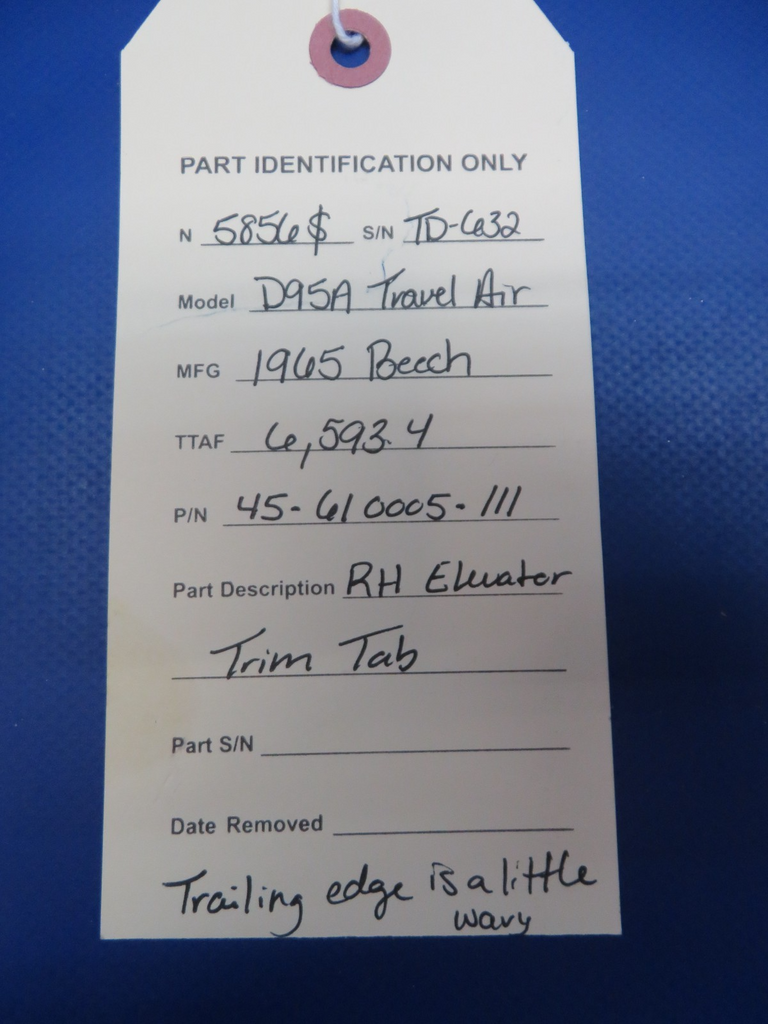 PART IDENTIFICATION ONLY
N 5856$ S/N TD-632
Model D95A Travel Air
MFG 1965 Beech
TTAF 6,593.4
P/N 45-610005-111
Part Description RH Elevator
Trim Tab
Part S/N
Date Removed
Trailing edge is a little
wavy